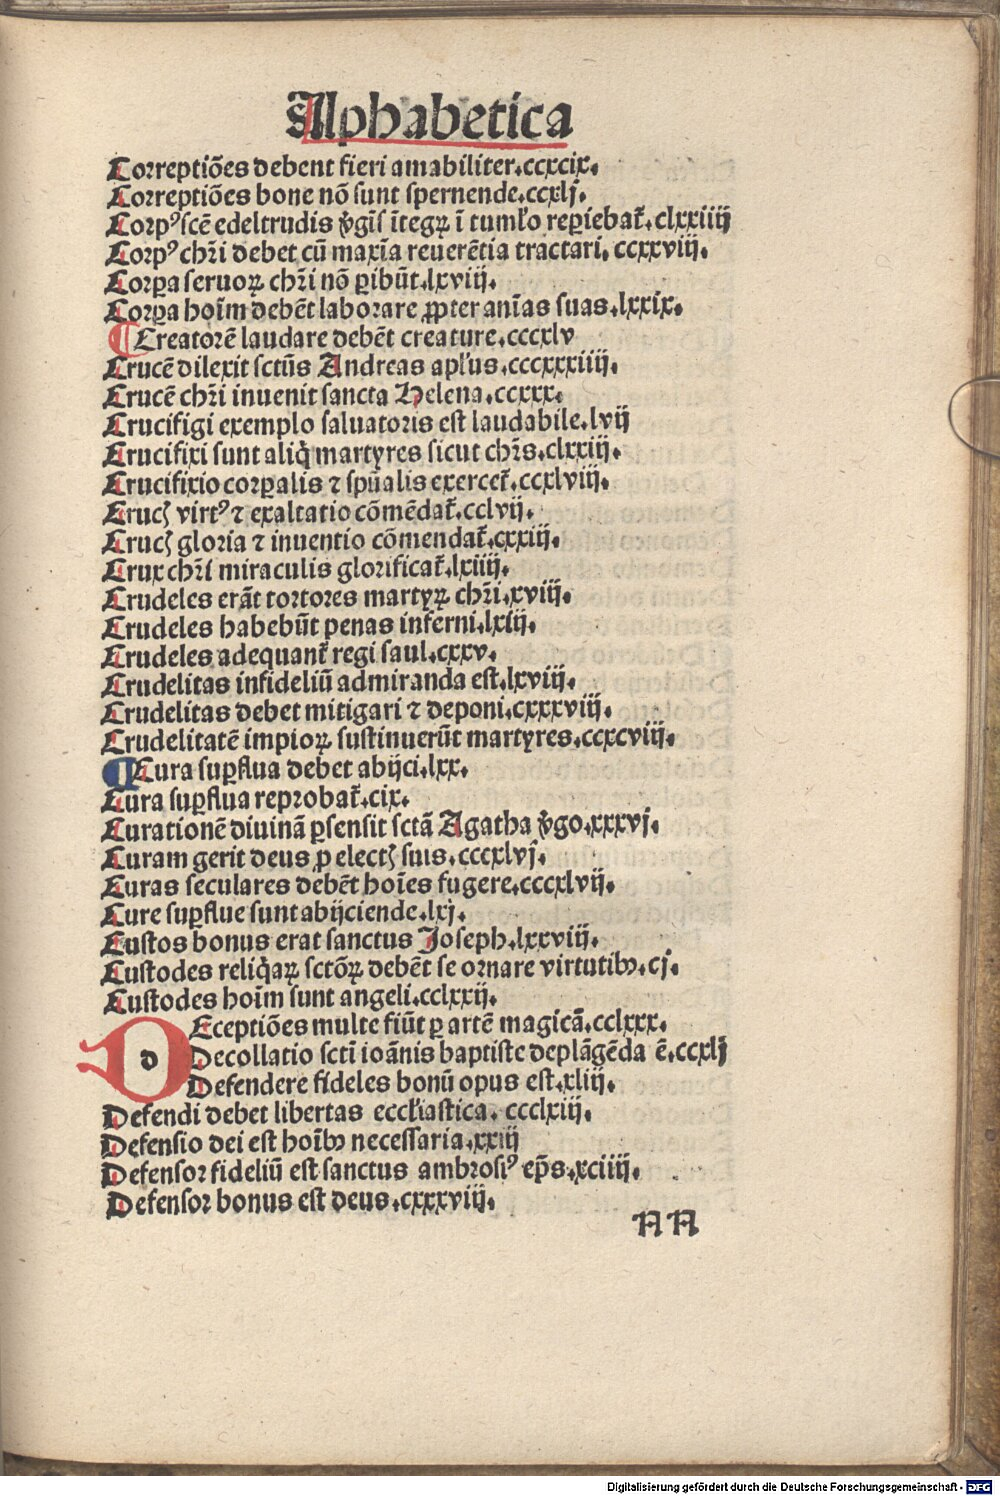 Alphabetica
Correptiões debent fieri amabiliter.ccxcix.
Correptiões bone nõ sunt spernende.ccxlj.
Corpꝰ scẽ edeltrudis v̾gĩs ĩtegꝝ ĩ tumľo reꝑiebat᷑.clxxiiij
Corpꝰ chr̃i debet cũ maxĩa reuerẽtia tractari.ccxxviij.
Corꝑa seruoꝝ chr̃i nõ ꝑibũt.lxviij.
Corꝑa hoĩm debẽt laborare ꝓpter anĩas suas.lxxix.
¶ Creatorẽ laudare debẽt creature.cccxlv
Crucẽ dilexit sctũs Andreas apľus.cccxxxiiij.
Crucẽ chr̃i inuenit sancta Helena.ccxxx.
Crucifigi exemplo saluatoris est laudabile.lvij
Crucifixi sunt aliq̃ martyres sicut chr̃s.clxxiij.
Crucifixio corꝑalis ⁊ sp̃ualis exercet᷑.ccxlviij.
Crucꝭ virtꝰ ⁊ exaltatio cõmẽdat᷑.cclvij.
Crucꝭ gloria ⁊ inuentio cõmendat᷑.cxxiij.
Crux chr̃i miraculis glorificat᷑.lxiiij.
Crudeles erãt tortores martyꝝ chr̃i.xviij.
Crudeles habebũt penas inferni.lxiij.
Crudeles adequant᷑ regi saul.cxxv.
Crudelitas infideliũ admiranda est.lxviij.
Crudelitas debet mitigari ⁊ deponi.cxxxviij.
Crudelitatẽ impioꝝ sustinuerũt martyres.ccxcviij.
¶ Cura suꝑflua debet abijci.lxx.
Cura suꝑflua reprobat᷑.cix.
Curationẽ diuinã ꝑsensit sctã Agatha v̾go.xxxvj.
Curam gerit deus ꝓ electꝭ suis.cccxlvj.
Curas seculares debẽt hoĩes fugere.cccxlvij.
Cure suꝑflue sunt abijciende.lxj.
Custos bonus erat sanctus Joseph.lxxviij.
Custodes reliq̃aꝝ sctõꝝ debẽt se ornare virtutibꝰ.cj.
Custodes hoĩm sunt angeli.cclxxij.
D d Eceptiões multe fiũt ꝑ artẽ magicã.cclxxx.
Decollatio sctĩ ioãnis baptiste deplãgẽda ẽ.ccxlj
Defendere fideles bonũ opus est.xliij.
Defendi debet libertas eccľiastica.ccclxiij.
Defensio dei est hoĩbꝰ necessaria.xxiij
Defensor fideliũ est sanctus ambrosiꝰ ep̃s.xciiij.
Defensor bonus est deus.cxxxviij.
AA
Digitalisierung gefördert durch die Deutsche Forschungsgemeinschaft - DFG